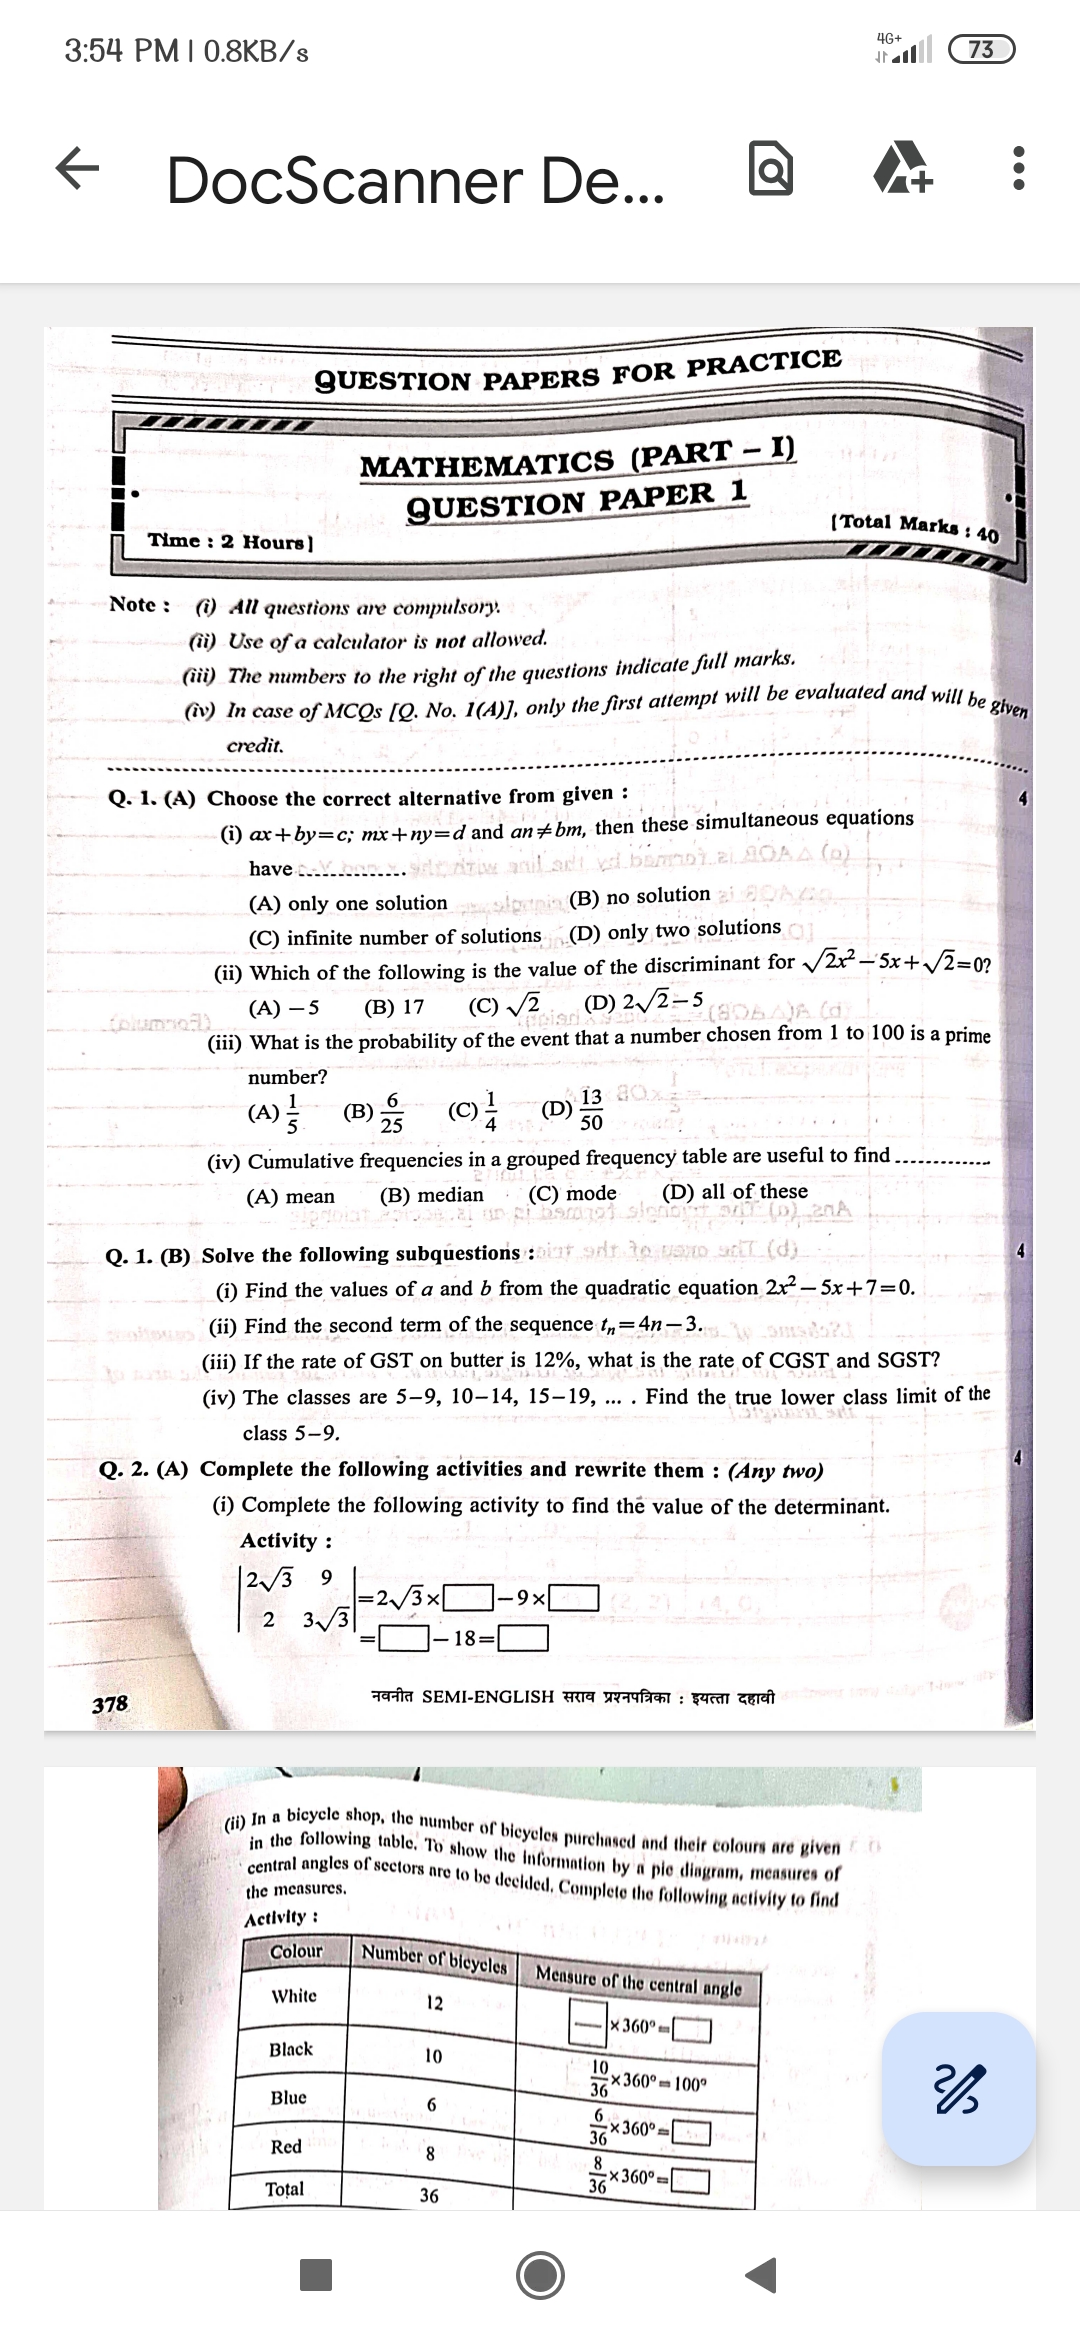 3:54 PM | 0.8KB/s 4G+ 73
DocScanner De...
QUESTION PAPERS FOR PRACTICE
MATHEMATICS (PART – I)
QUESTION PAPER 1
Time : 2 Hours] [Total Marks : 40
Note : (i) All questions are compulsory.
(ii) Use of a calculator is not allowed.
(iii) The numbers to the right of the questions indicate full marks.
(iv) In case of MCQs [Q. No. 1(A)], only the first attempt will be evaluated and will be given
credit.
Q. 1. (A) Choose the correct alternative from given : 4
(i) ax+by=c; mx+ny=d and an≠bm, then these simultaneous equations
have .............
(A) only one solution (B) no solution
(C) infinite number of solutions (D) only two solutions
(ii) Which of the following is the value of the discriminant for √2x² – 5x+√2=0?
(A) –5 (B) 17 (C) √2 (D) 2√2–5
(iii) What is the probability of the event that a number chosen from 1 to 100 is a prime
number?
(A) 1/5 (B) 6/25 (C) 1/4 (D) 13/50
(iv) Cumulative frequencies in a grouped frequency table are useful to find .............
(A) mean (B) median (C) mode (D) all of these
Q. 1. (B) Solve the following subquestions : 4
(i) Find the values of a and b from the quadratic equation 2x² – 5x+7=0.
(ii) Find the second term of the sequence tₙ=4n–3.
(iii) If the rate of GST on butter is 12%, what is the rate of CGST and SGST?
(iv) The classes are 5–9, 10–14, 15–19, ... . Find the true lower class limit of the
class 5–9.
Q. 2. (A) Complete the following activities and rewrite them : (Any two) 4
(i) Complete the following activity to find the value of the determinant.
Activity :
|2√3 9| =2√3×□–9×□
|2 3√3| =□–18=□
378 नवनीत SEMI-ENGLISH सराव प्रश्नपत्रिका : इयत्ता दहावी
(ii) In a bicycle shop, the number of bicycles purchased and their colours are given
in the following table. To show the information by a pie diagram, measures of
central angles of sectors are to be decided. Complete the following activity to find
the measures.
Activity :
Colour Number of bicycles Measure of the central angle
White 12 □×360°=□
Black 10 10/36×360°=100°
Blue 6 6/36×360°=□
Red 8 8/36×360°=□
Total 36